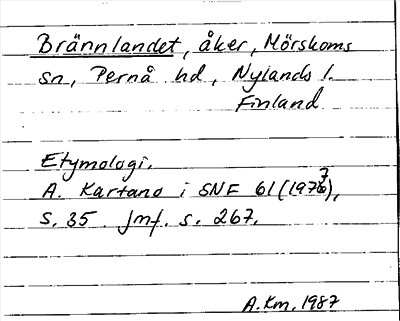 Brännlandet, åker, Mörskoms
sn, Pernå hd, Nylands l.
Finland
Etymologi.
A. Kartano i SNF 61 (1977),
s. 35. Jmf. s. 267.
A.Km. 1987